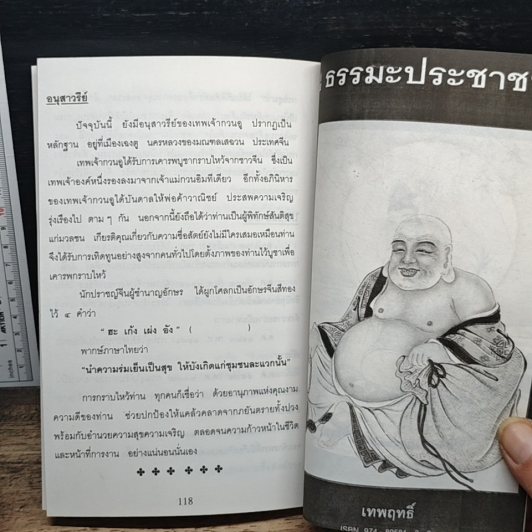 อนุสาวรีย์
ปัจจุบันนี้ ยังมีอนุสาวรีย์ของเทพเจ้ากวนอู ปรากฏเป็น
หลักฐาน อยู่ที่เมืองเฉงตู นครหลวงของมณฑลเสฉวน ประเทศจีน
เทพเจ้ากวนอูได้รับการเคารพบูชากราบไหว้จากชาวจีน ซึ่งเป็น
เทพเจ้าองค์หนึ่งรองลงมาจากเจ้าแม่กวนอิมทีเดียว อีกทั้งอภินิหาร
ของเทพเจ้ากวนอูได้บันดาลให้พ่อค้าวาณิชย์ ประสพความเจริญ
รุ่งเรืองไป ตาม ๆ กัน นอกจากนี้ยังถือได้ว่าท่านเป็นผู้พิทักษ์สันติสุข
แก่มวลชน เกียรติคุณเกี่ยวกับความซื่อสัตย์ยังไม่มีใครเสมอเหมือนท่าน
จึงได้รับการเทิดทูนอย่างสูงจากคนทั่วไปโดยตั้งภาพของท่านไว้บูชาเพื่อ
เคารพกราบไหว้
นักปราชญ์จีนผู้ชำนาญอักษร ได้ผูกโคลกเป็นอักษรจีนสีทอง
ไว้ ๔ คำว่า
"ฮะ เก้ง เผ่ง อัง" ( )
พากษ์ภาษาไทยว่า
"นำความร่มเย็นเป็นสุข ให้บังเกิดแก่ชุมชนละแวกนั้น"
การกราบไหว้ท่าน ทุกคนก็เชื่อว่า ด้วยอานุภาพแห่งคุณงาม
ความดีของท่าน ช่วยปกป้องให้แคล้วคลาดจากภยันตรายทั้งปวง
พร้อมกับอำนวยความสุขความเจริญ ตลอดจนความก้าวหน้าในชีวิต
และหน้าที่การงาน อย่างแน่นอนนั่นเอง
118
ธรรมะประชาช
เทพฤทธิ์
ISBN 974